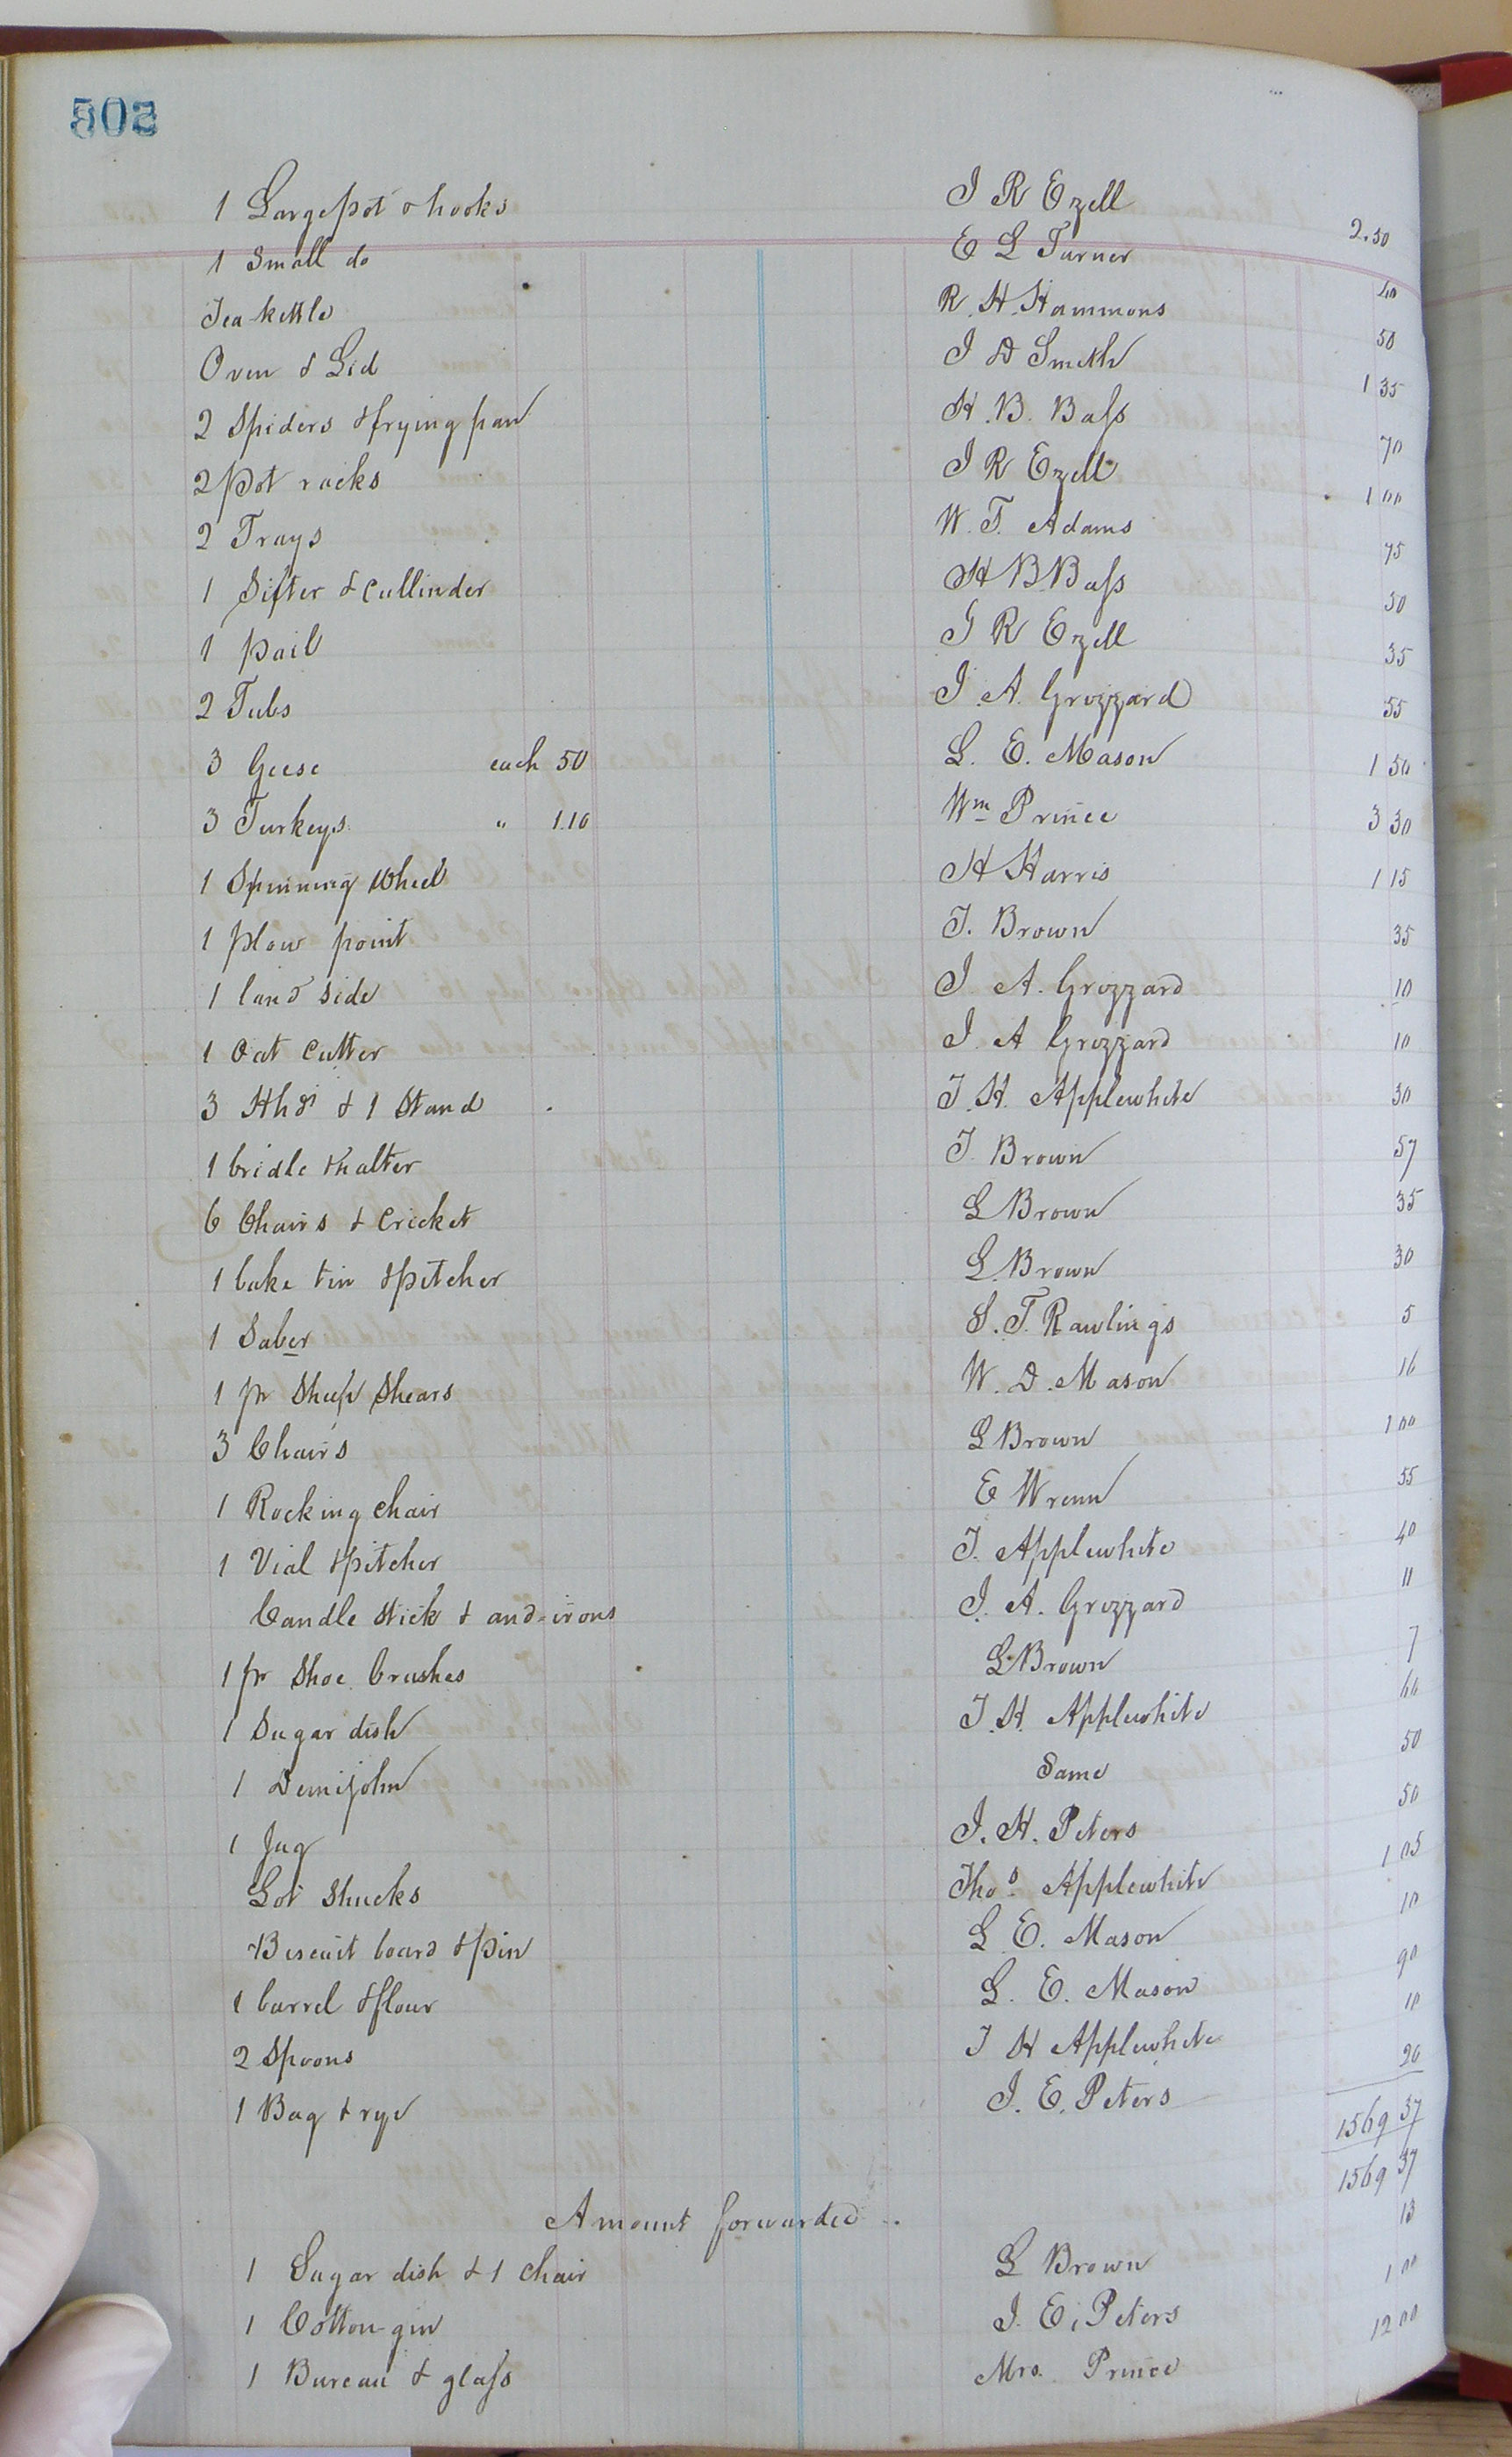 502
1 Large pot & hooks J R Ezell 2.50
1 Small do E L Turner 40
Tea kettle R. H. Hammons 50
Oven & Lid J D Smith 1 35
2 Spiders & frying pan H. B. Bass 70
2 Pot racks J R Ezell 1 00
2 Trays W. T. Adams 75
1 Sifter & cullinder H B Bass 50
1 pail J R Ezell 35
2 Tubs J. A. Grizzard 55
3 Geese each 50 L. E. Mason 1 50
3 Turkeys " 1.10 Wm Prince 3 30
1 Spinning Wheel H Harris 1 15
1 plow point T. Brown 35
1 land side J. A. Grizzard 10
1 Oat cutter J. A Grizzard 10
3 Hhds & 1 Stand T. H. Applewhite 30
1 bridle & halter T. Brown 57
6 Chairs & Cricket L Brown 35
1 cake tin & pitcher L. Brown 30
1 Saber S. T. Rawlings 5
1 pr Sheep Shears W. D. Mason 16
3 Chairs L Brown 1 00
1 Rocking chair E Wrenn 55
1 Vial & pitcher T. Applewhite 40
Candle stick & and-irons J. A. Grizzard 11
1 pr Shoe brushes L Brown 7
1 Sugar dish T. H. Applewhite 60
1 Demijohn Same 50
1 Jug J. H. Peters 50
Lot Shucks Thos. Applewhite 1 05
Biscuit board & pin L. E. Mason 10
1 barrel & flour L. E. Mason 90
2 Spoons T H Applewhite 10
1 Bag & rye J. E. Peters 20
1569 37
Amount forwarded 1569 37
1 Sugar dish & 1 chair L Brown 13
1 Cotton gin J. E. Peters 1 00
1 Bureau & glass Mrs. Prince 12 00